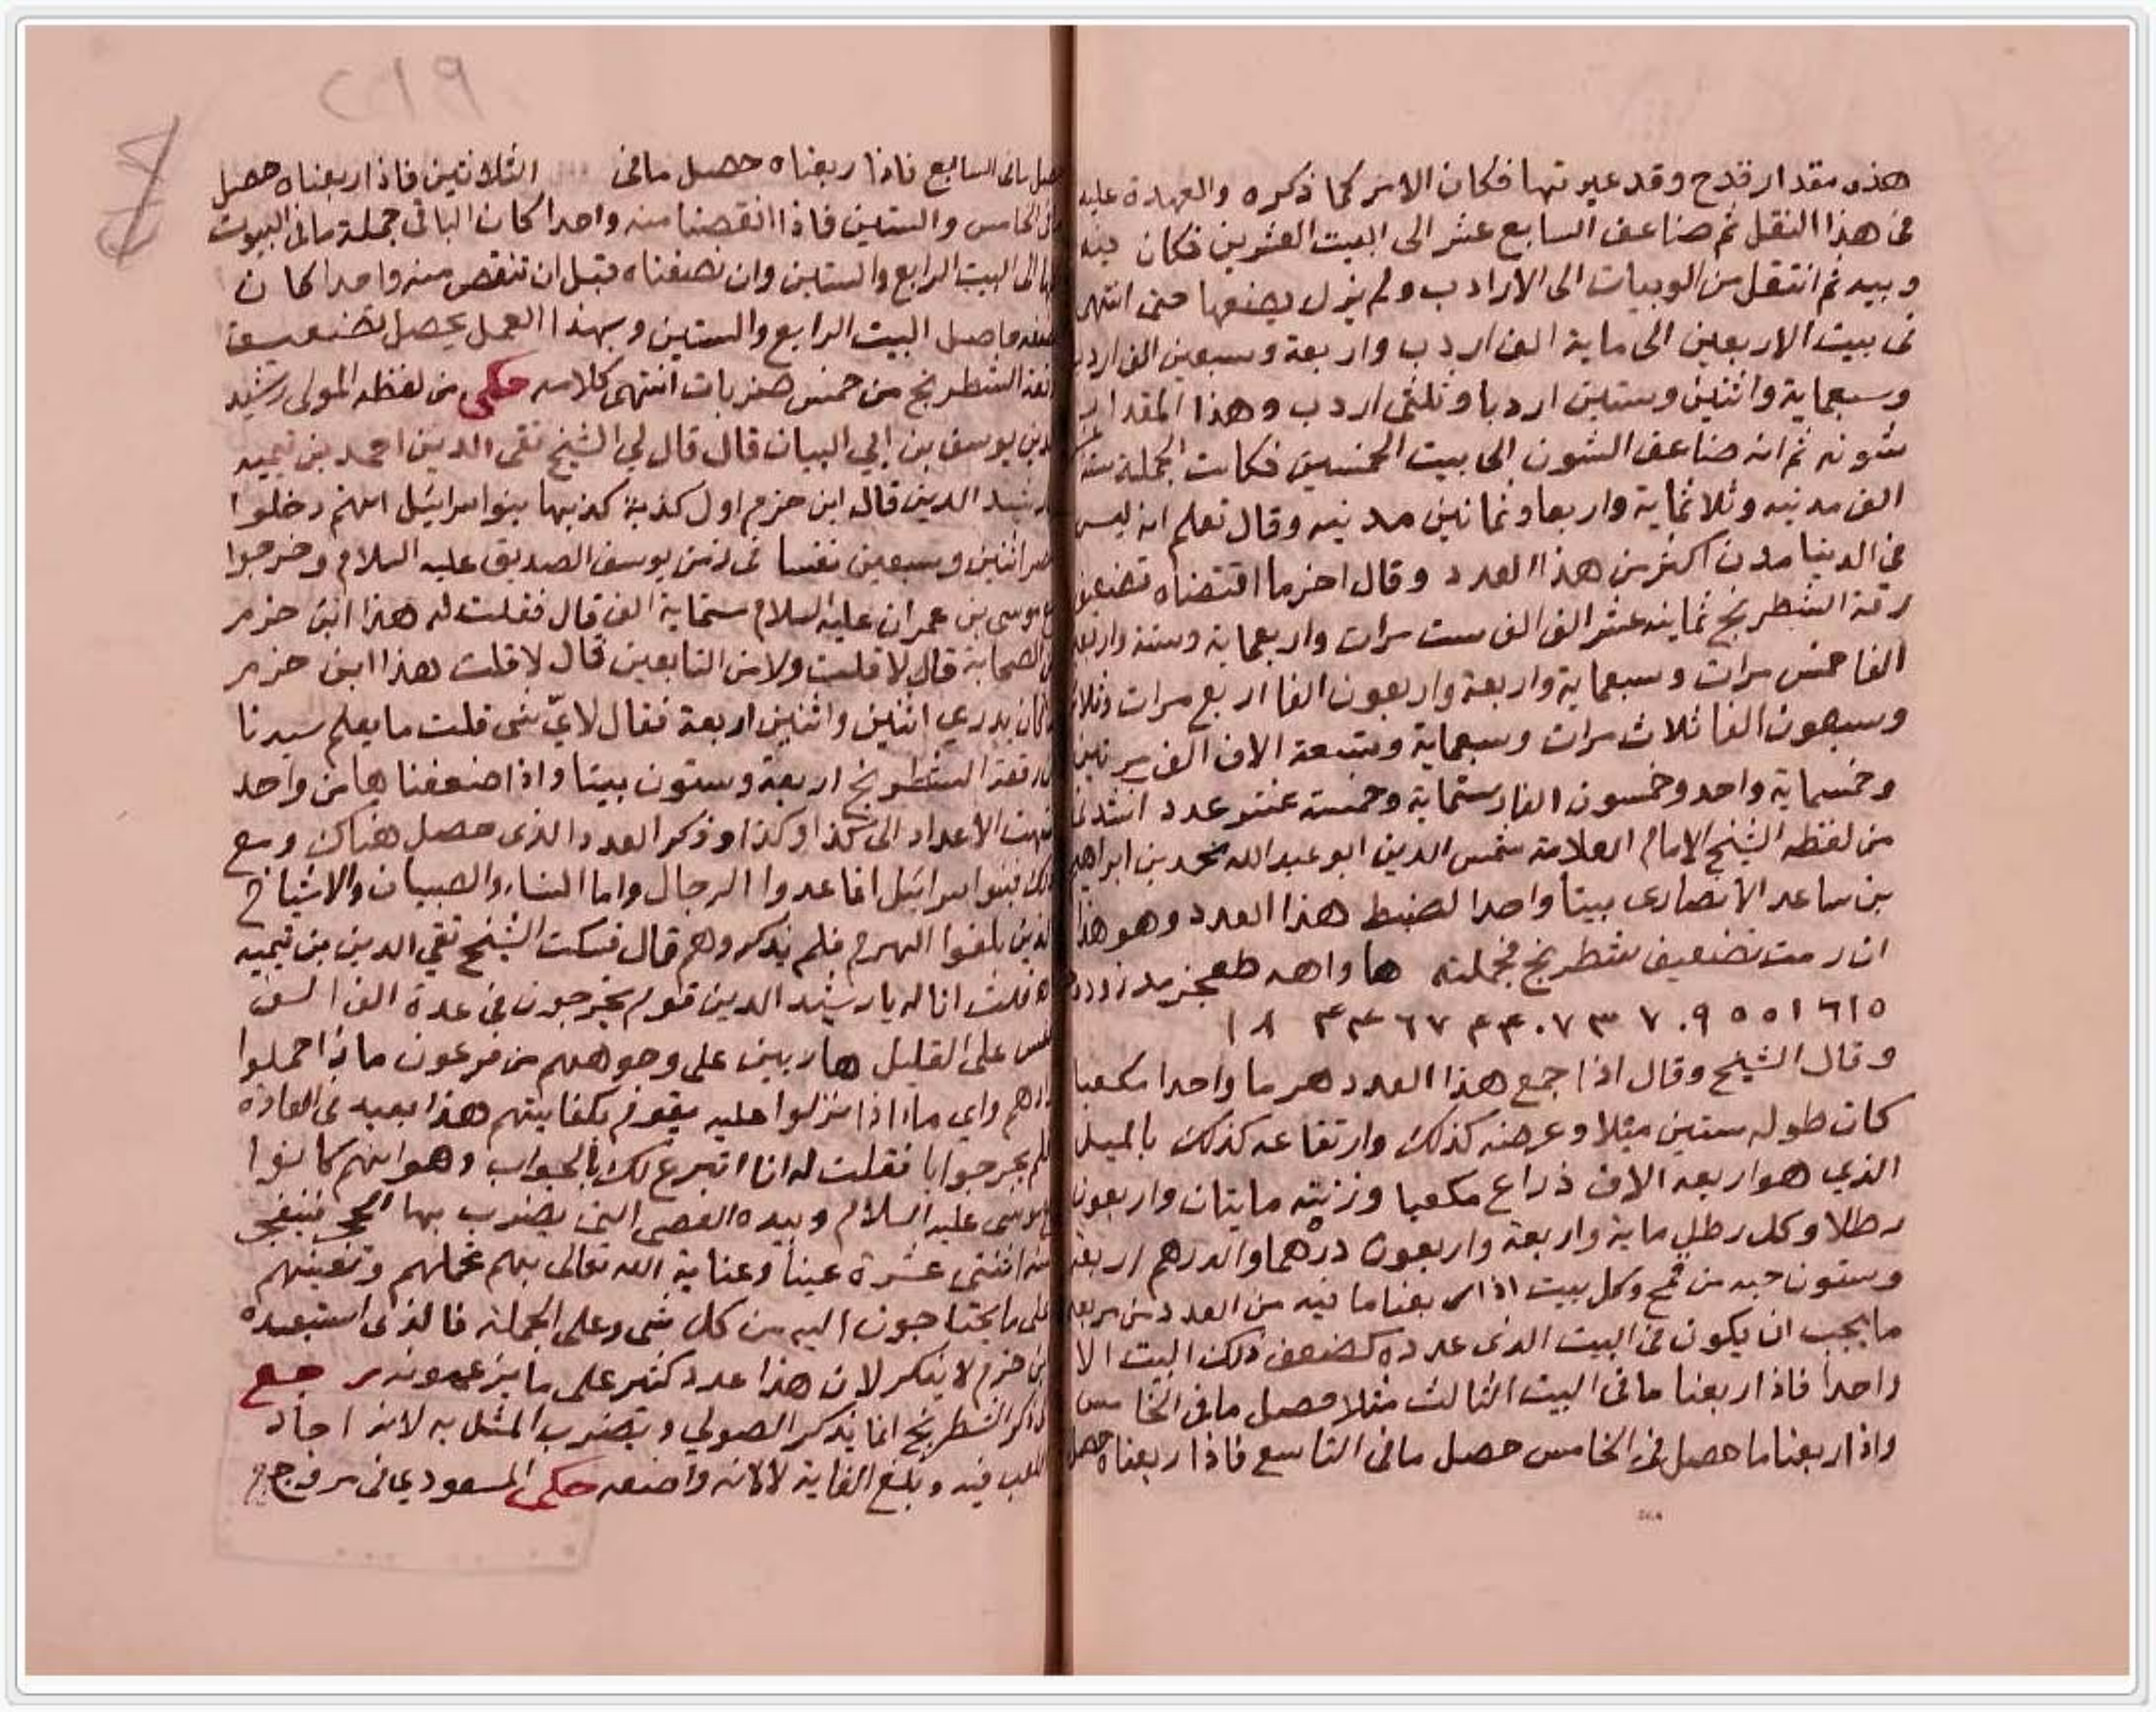 هذه مقدار قدح وقد عيرتها فكان الامر كما ذكره والعهدة عليه
في هذا النقل ثم ضاعف السابع عشر الى البيت العشرين فكان فيه
ويبه ثم انتقل من الويبات الى الارادب ولم يزل يضعفها حتى انتهى
في بيت الاربعين الى ماية الف اردب واربعة وسبعين الف اردب
وسبعماية واثنين وستين اردبا وثلثي اردب وهذا المقدار
شونه ثم انه ضاعف الشون الى بيت الخمسين فكانت الجملة
الف مدينه وثلاثماية واربعا وثمانين مدينه وقال تعلم انه ليس
في الدنيا مدن اكثر من هذا العدد وقال اخر ما اقتضاه تضعيف
رقعة الشطرنج ثمانيه عشر الف الف ست مرات واربعماية وستة واربعين
الفا خمس مرات وسبعماية واربعة واربعون الفا اربع مرات وثلاثة
وسبعون الفا ثلاث مرات وسبعماية وتسعة الاف الف مرتين
وخمسماية واحد وخمسون الفا وستماية وخمسة عشر عدد انشدني
من لفظه الشيخ الامام العلامة شمس الدين ابو عبد الله محمد بن ابراهيم
بن ساعد الانصارى بيتا واحدا لضبط هذا العدد وهو هذا
ان رمت تضعيف شطرنج بجملته ها واهه طعجز مد زود
١٨ ٤٤٦٧ ٤٤٠٧٣ ٧٠٩٥٥١٦١٥
وقال الشيخ وقال اذا جمع هذا العدد هرما واحدا مكعبا
كان طوله ستين ميلا وعرضه كذلك وارتفاعه كذلك بالميل
الذي هو اربعه الاف ذراع مكعبا وزنته مايتان واربعون
رطلا وكل رطل ماية واربعة واربعون درهما والدرهم اربعة
وستون حبه من قمح وكل بيت اذا ربعنا ما فيه من العدد من مربعه
ما يجب ان يكون في البيت الذى عدده كضعف ذلك البيت الا
واحدا فاذا ربعنا مافى البيت الثالث مثلا حصل مافى الخامس
واذا ربعنا ما حصل في الخامس حصل مافى التاسع فاذا ربعناه حصل
مافى السابع فاذا ربعناه حصل مافى الثلاثين فاذا ربعناه حصل
الخامس والستين فاذا انقصنا منه واحدا كان الباقي جملة مافى البيوت
الى البيت الرابع والستين وان نصفناه قبل ان تنقص منه واحدا كان
حاصل البيت الرابع والستين وبهذا العمل يحصل تضعيف
رقعة الشطرنج من خمس ضربات انتهى كلامه حكى من لفظه المولى رشيد
الدين يوسف بن ابي البيان قال قال لي الشيخ تقى الدين احمد بن تيميه
يا رشيد الدين قال ابن حزم اول كذبة كذبها بنوا اسرائيل انهم دخلوا
مصر اثنين وسبعين نفسا فى زمن يوسف الصديق عليه السلام وخرجوا
مع موسى بن عمران عليه السلام ستماية الف قال فقلت له هذا ابن حزم
من الصحابة قال لا قلت ولا من التابعين قال لا قلت هذا ابن حزم
ما كان يدري اثنين واثنين اربعة فقال لايّ شى قلت ما يعلم سيدنا
ان رقعة الشطرنج اربعة وستون بيتا واذا ضعفناها من واحد
انتهت الاعداد الى كذا وكذا وذكر العدد الذى حصل هناك ومع
ذلك فبنوا اسرائيل انما عدوا الرجال واما النساء والصبيان والاشياخ
الذين بلغوا الهرم فلم يذكروهم قال فسكت الشيخ تقي الدين بن تيميه
فقلت انا له يا رشيد الدين قوم يخرجون فى عدة الف الف
نفس على القليل هاربين على وجوههم من فرعون ماذا حملوا
زادهم واي ماء اذا نزلوا عليه يقوم بكفايتهم هذا بعيد فى العادة
فلم يحر جوابا فقلت له انا اتبرع لك بالجواب وهو انهم كانوا
مع موسى عليه السلام وبيده العصى التى يضرب بها الحجر فينفجر
منه اثنتى عشرة عينا وعناية الله تعالى بهم تحملهم وتعينهم
على ما يحتاجون اليه من كل شى وعلى الجملة فالذى استبعده
ابن حزم لا ينكر لان هذا عدد كثير على ما يزعمونه رجع
ذاكر الشطرنج انما يذكر الصولي ويضرب المثل به لانه اجاد
اللعب فيه وبلغ الغاية لا لانه واضعه حكى المسعودي فى مروج